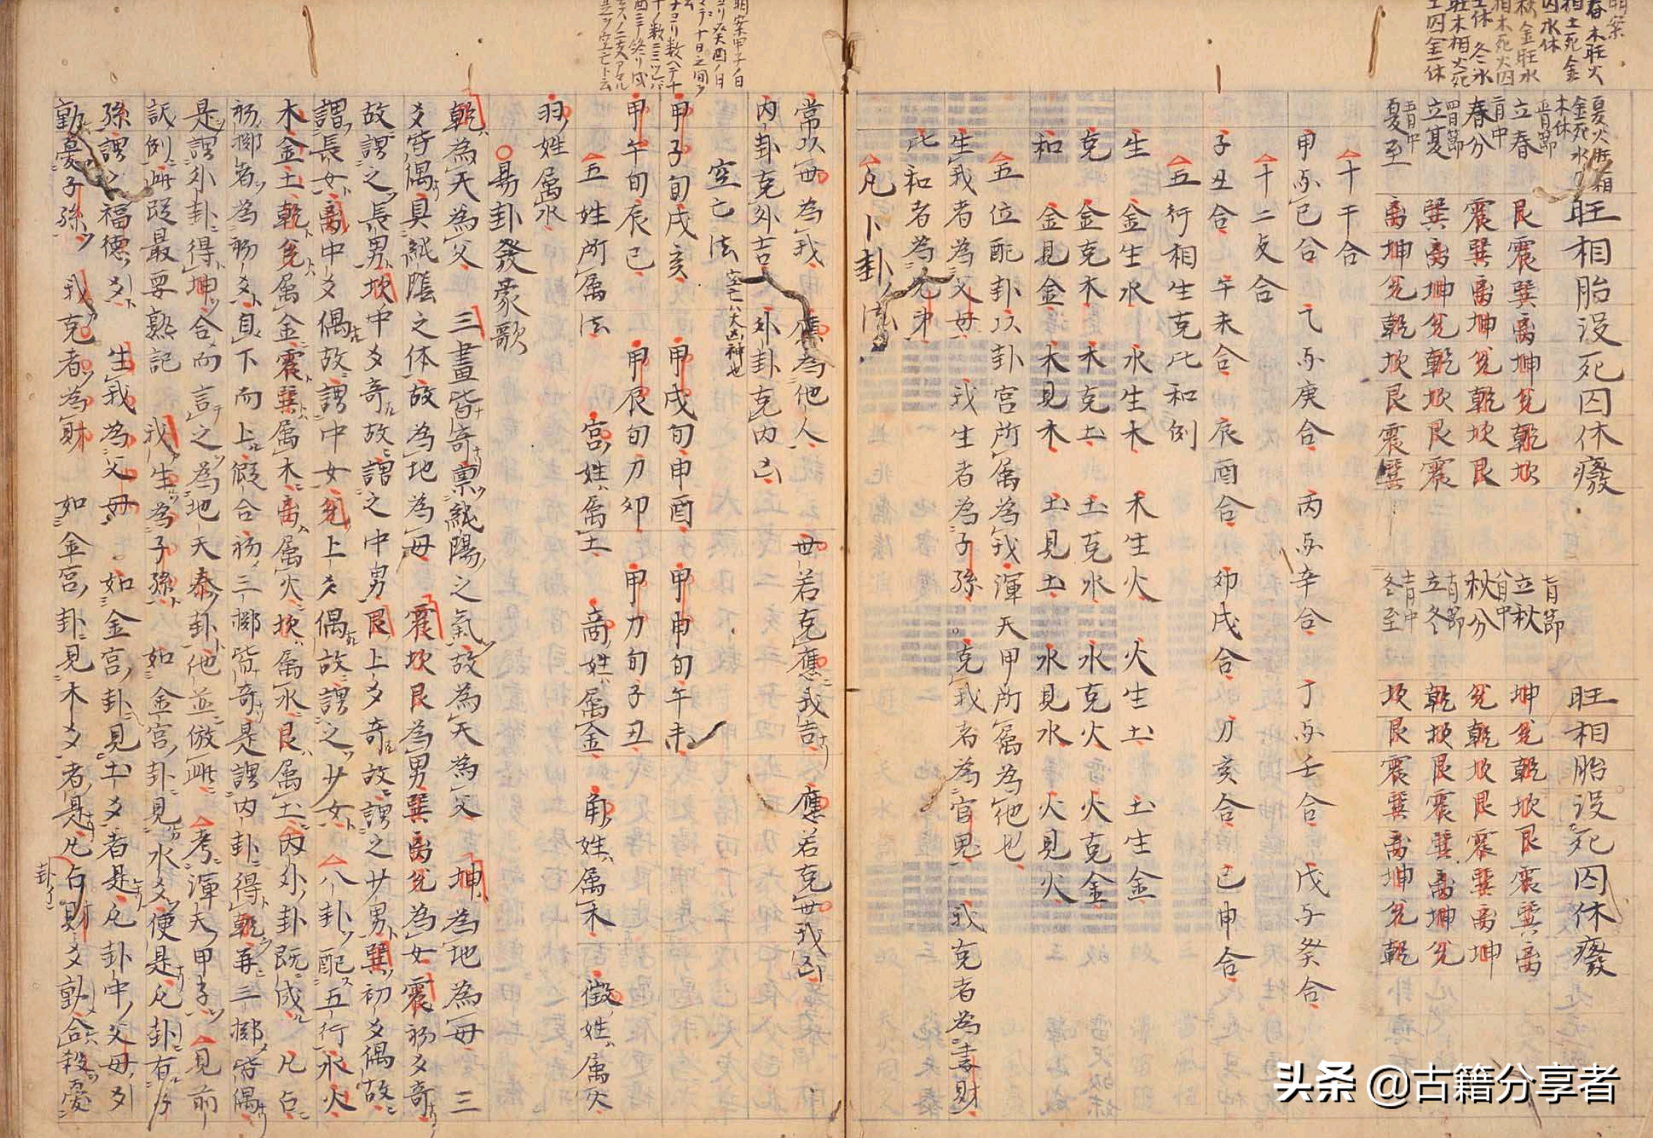 旺相胎没死囚休癈　旺相胎没死囚休癈
立春　艮震巽离坤兌乾坎　立秋　坤兌乾坎艮震巽离
春分　震巽离坤兌乾坎艮　秋分　兌乾坎艮震巽离坤
立夏　巽离坤兌乾坎艮震　立冬　乾坎艮震巽离坤兌
夏至　离坤兌乾坎艮震巽　冬至　坎艮震巽离坤兌乾
十干合
甲与己合　乙与庚合　丙与辛合　丁与壬合　戊与癸合
十二支合
子丑合　午未合　辰酉合　卯戌合　刀亥合　巳申合
五行相生克比和例
生　金生水　水生木　木生火　火生土　土生金
克　金克木　木克土　土克水　水克火　火克金
和　金見金　木見木　土見土　水見水　火見火
五位配卦以卦宮所属為我渾天甲所属為他也
生我者為父母　我生者為子孫。克我者為官鬼　我克者為妻財
比和者為兄弟
凡卜卦法
常以世為我　應為他人　世若克應我吉　應若克世我凶
内卦克外吉　外卦克内凶
空亡法　空亡八大凶神也
甲子旬戌亥　甲戌旬申酉　甲申旬午未
甲午旬辰巳　甲辰旬刀卯　甲刀旬子丑
五姓所属法　宮姓属土　商姓属金　角姓属木　徵姓属火
羽姓属水
易卦發蒙歌
乾為天為父　三畫皆奇稟純陽之氣故為天為父　坤為地為母　三
爻皆偶具純陰之体故為地為母　震坎艮為男巽离兌為女震初爻奇
故謂之長男坎中爻奇故謂之中男艮上爻奇故謂之少男巽初爻偶故
謂長女离中爻偶故謂中女兌上爻偶故謂之少女　八卦配五行水火
木金土乾兌属金震巽属木离属火坎属水艮属土内外卦既成　凡占
初擲者為初爻自下而上假合初三擲皆奇是謂内卦得乾再三擲皆偶
是謂外卦得坤合而言之為地天泰卦他並倣此　考渾天甲子　見前
訣例此段最要熟記　我生為子孫　如金宮卦見水爻便是凡卦有
孫謂之福德爻　生我為父母　如金宮卦見土爻者是凡卦中父母
動憂子孫　我克者為財　如金宮卦見木爻者是凡占財爻動
头条 @古籍分享者